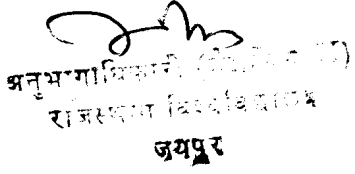 अनुभागाधिकारी
राजस्थान विश्वविद्यालय
जयपुर